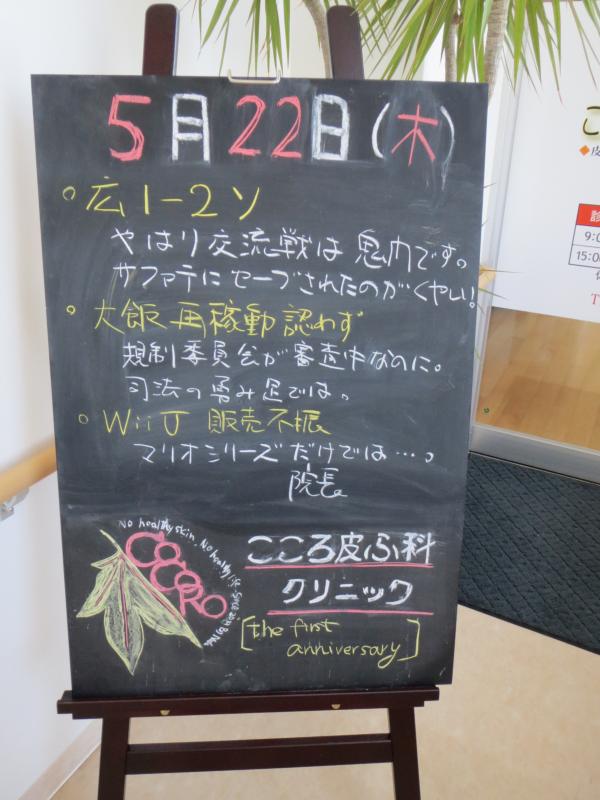 5月22日(木)
○広1-2ソ
やはり交流戦は鬼門です。
サファテにセーブされたのがくやしい!
○大飯再稼動認めず
規制委員会が審査中なのに。
司法の勇み足では。
○WiiU 販売不振
マリオシリーズだけでは…。
院長
No healthy skin, No healthy life
COCORO
こころ皮ふ科
クリニック
[the first
anniversary]
こ
◆皮
診
9:0
15:00
T